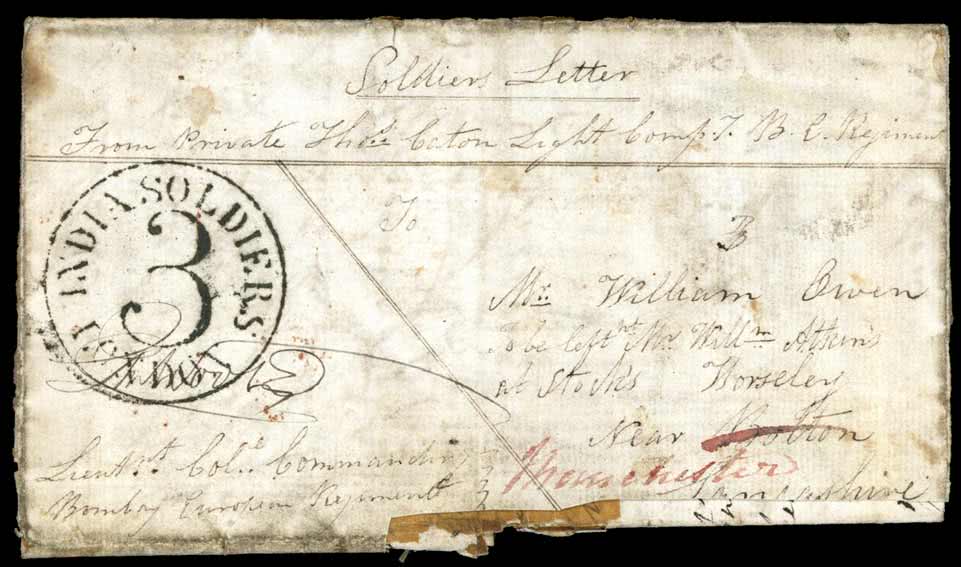 Soldiers Letter
From Private Thos. Caton Light Compy. B. E. Regiment
INDIA SOLDIERS
3
To
B
Mr. William Owen
To be left at Mr. Willm. Atkins
at Stocks Worseley
Near Bolton
Manchester
Lancashire
Lieutnt. Colel. Commanding
Bombay European Regiment